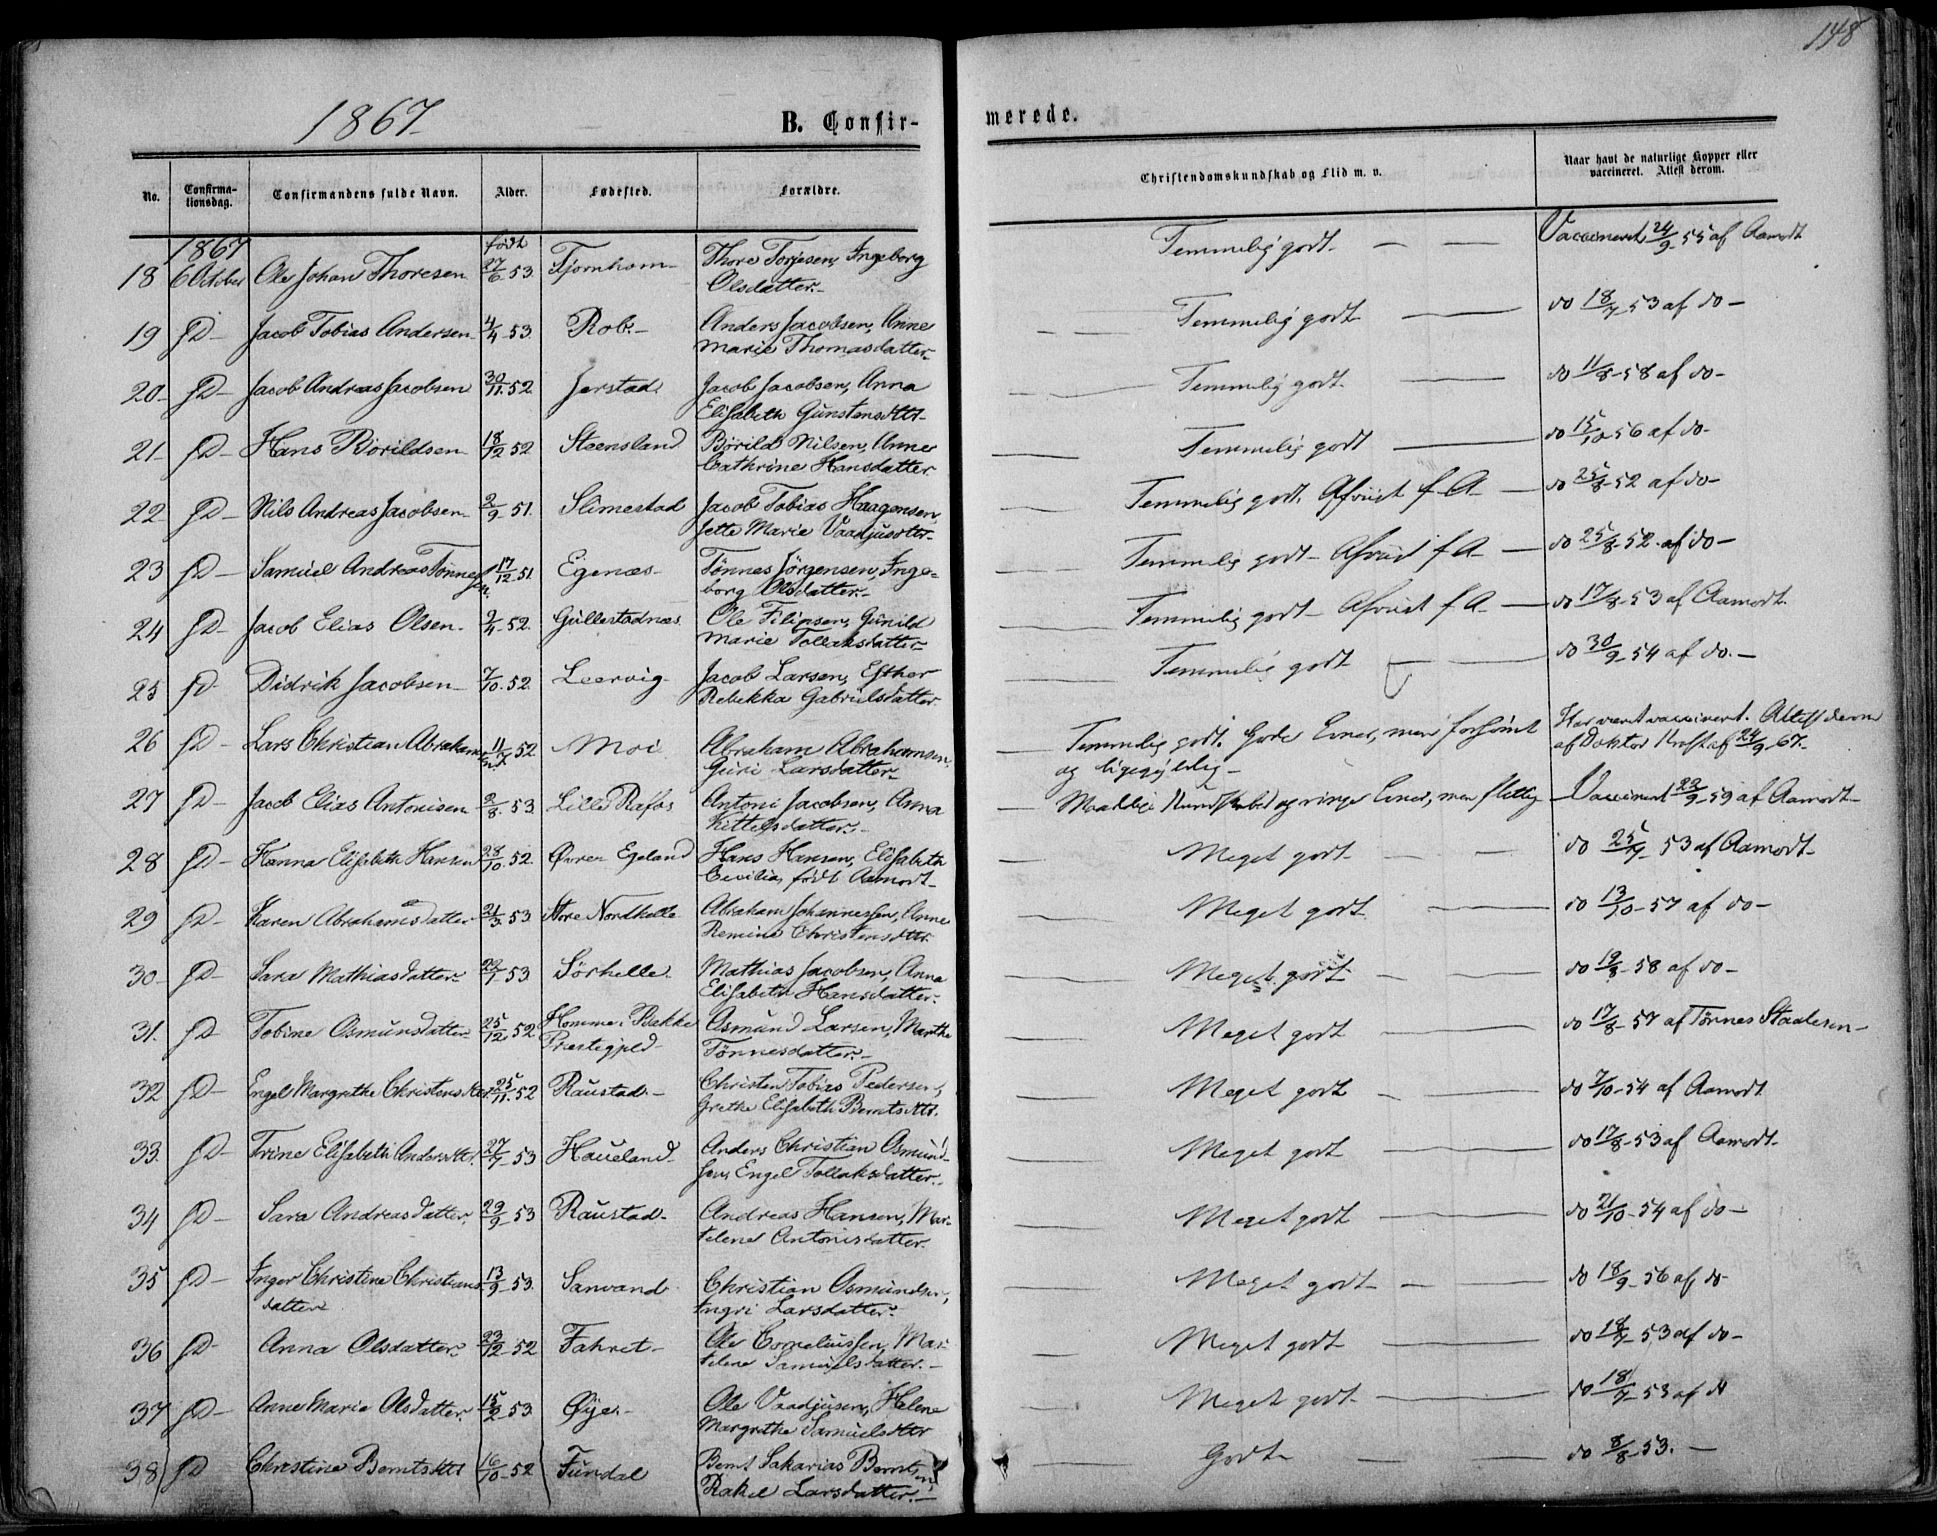 148
1867
B. Confirmerede.
No. Confirmationsdag. Confirmandens fulde Navn. Alder. Fødested. Forældre. Christendomskundskab og Flid m. v. Naar havt de naturlige Kopper eller vaccineret. Attest derom.
1867 født
18 6 October Ole Johan Thoresen 27/6 53 Fjornham Thore Torjesen, Ingeborg Olsdatter Temmelig godt Vaccineret 24/9 55 af Aamodt
19 D Jacob Tobias Andersen 4/4 53. Rob Anders Jacobsen, Anne Marie Thomasdatter Temmelig godt do 18/7 53 af do
20 D Jacob Andreas Jacobsen 30/11. 52. Jerstad Jacob Jacobsen, Anna Elisabeth Gunstensdttr Temmelig godt do 11/8 58 af do
21 D Hans Börildsen 18/12 52 Steensland Börild Nilsen, Anne Cathrine Hansdatter Temmelig godt do 15/10 56 af do
22 D Nils Andreas Jacobsen 2/9 51. Slimestad Jacob Tobias Haagensen, Jette Marie Vaadjusdttr Temmelig godt. Afviist f. A. do 25/8 52 af do
23 D Samuel Andreas Tønnessen 17/12 51 Egenæs Tönnes Jörgensen, Ingeborg Olsdatter Temmelig godt Afviist f. A. do 25/8 52. af do
24 D Jacob Elias Olsen 2/4 52. Gullestadnæs Ole Filipsen, Gunild Marie Tollaksdatter Temmelig godt Afviist f. A. do 17/8 53 af Aamodt.
25 D Didrik Jacobsen 7/10. 52. Leervig Jacob Larsen, Esther Rebekka Gabrielsdatter Temmelig godt do 30/9 54 af do.
26 D Lars Christian Abrahamsen 11/7 52. Moi Abraham Abrahamsen, Guri Larsdatter Temmelig godt. Gode Evner, men forsømt og ligegyldig Har været vaccineret. Attest derom af Doktor Kraft af 24/9 67.
27 D Jacob Elias Antonisen 2/8. 53. Lille Rafos Antoni Jacobsen, Anna Kittelsdatter Maadelige Kundskaber og ringe Evner, men flittig Vaccineret 22/9 59 af Aamodt
28 D Hanna Elisabeth Hansen 28/10. 52. Øvre Egeland Hans Hansen, Elisabeth Cecilia født Aamodt Meget godt do 25/7 53 af Aamodt
29 D Karen Abrahamsdatter 21/3. 53 Store Nordhelle Abraham Johannessen, Anne Remine Christensdttr Meget godt do 13/10 57 af do
30 D Sara Mathiasdatter 22/1 53 Sörhelle Mathias Jacobsen, Anna Elisabeth Hansdatter. Meget godt do 12/8 58 af do
31. D Tobine Osmundsdatter 25/12 52 Homme i Bakke Præstegjeld Osmund Larsen, Marthe Tönnesdatter Meget godt do 17/8 57 af Tönnes Staalesen
32 D Engel Margrethe Christensdttr 25/11. 52 Raustad Christen Tobias Pedersen, Grethe Elisabeth Berntsdttr. Meget godt do 7/10 54 af Aamodt
33 D Trine Elisabeth Andersdttr. 27/7 53 Haueland Anders Christian Osmundsen, Engel Tollaksdatter Meget godt do 17/8 53 af Aamodt
34 D Sara Andreasdatter 29/9 53 Raustad Andreas Hansen, Martelene Antonisdatter Meget godt do 21/10 54 af do
35 D Inger Christine Christiansdatter 13/9 53. Sanvand Christian Osmundsen, Ingri Larsdatter Meget godt do 18/9 56 af do
36 D Anna Olsdatter 23/12 52 Fahret Ole Corneliussen, Martelene Samuelsdatter Meget godt do 18/7 53 af do
37 D Anne Marie Olsdatter 15/2 53. Øye Ole Vaadjusen, Helene Margrethe Samuelsdttr Meget godt do 18/7 53 af d
38 D Christine Berntsdttr 16/10 52 Fundal Bernt Sakarias Berntsen, Rakel Larsdatter Godt do 8/8 53.